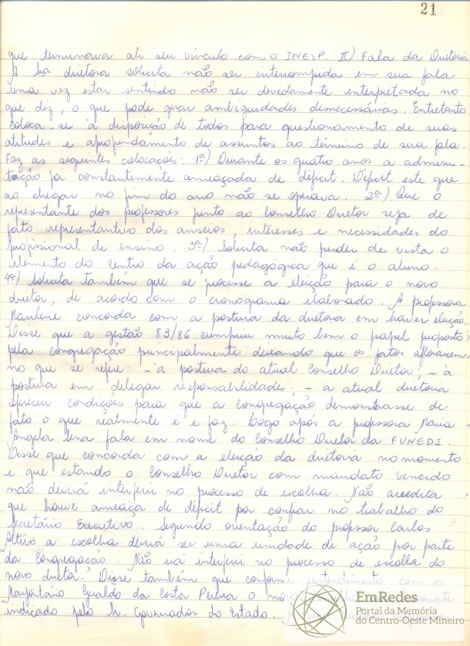 21
que terminava ali seu vínculo com o INESP. II) Fala da Diretora
A Sra diretora solicita não ser interrompida em sua fala
uma vez estar sentindo não ser devidamente interpretada no
que diz, o que pode gerar ambiguidades desnecessárias. Entretanto
coloca-se à disposição de todos para questionamento de suas
atitudes e aprofundamento de assuntos ao término de sua fala.
Faz as seguintes colocações: 1º) Durante os quatro anos a adminis-
tração foi constantemente ameaçada de déficit. Déficit este que
ao chegar no fim do ano não se operava. 2º) Que o
representante dos professores junto ao Conselho Diretor seja de
fato representantivo dos anseios, interesses e necessidades do
profissional de ensino. 3º) Solicita não perder de vista o
elemento do centro da ação pedagógica que é o aluno.
4º) Solicita também que se processe a eleição para o novo
diretor, de acordo com o cronograma elaborado. A professora
Marlene concorda com a postura da diretora em haver eleição.
Disse que a gestão 83/86 cumpriu muito bem o papel proposto
pela congregação principalmente deixando que os fatos aflorassem
no que se refere: - à postura do atual Conselho Diretor; - à
postura em delegar responsabilidades, - a atual diretora
ofereceu condições para que a congregação demonstrasse de
fato o que realmente é e faz. Logo após a professora Maria
Ângela Sena fala em nome do Conselho Diretor da FUNEDI.
Disse que concorda com a eleição da diretora no momento
e que estando o Conselho Diretor com mandato vencido
não deverá interferir no processo de escolha. Não acredita
que houve ameaça de déficit por confiar no trabalho do
Secretário Executivo. Segundo orientação do professor Carlos
Altivo a escolha deverá ser uma unidade de ação por parte
da Congregação. Não irá interferir no processo de escolha do
novo diretor. Disse também que conforme entendimento com o
Geraldo da Costa Pereira o
indicado pelo Sr. Governador do Estado.
EmRedes
Portal da Memória
do Centro-Oeste Mineiro